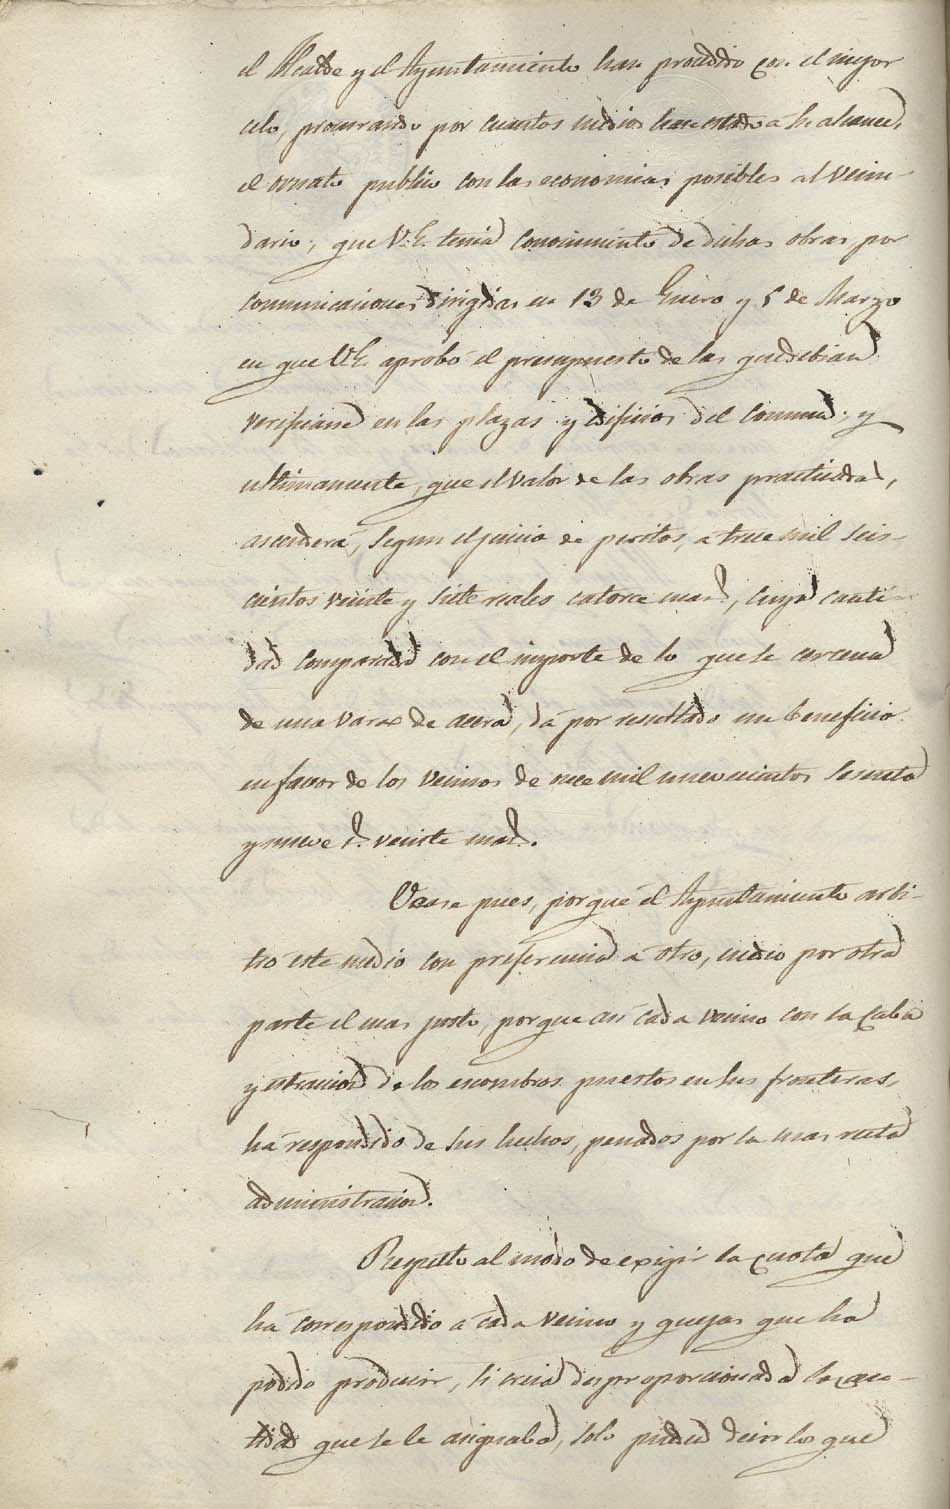 el Alcalde y el Ayuntamiento han procedido con el mejor
celo, procurando por cuantos medios han estado a su alcance,
el ornato publico con las economias posibles al vecin-
dario; que V.E. tenia conocimiento de dichas obras por
comunicaciones dirigidas en 13 de Enero y 5 de Marzo
en que V.E. aprobó el presupuesto de las que debian
verificarse en las plazas y edificios del comun; y
ultimamente, que el valor de las obras practicadas,
ascenderá, segun el juicio de peritos, á trece mil seis-
cientos veinte y siete reales catorce mar.s, cuya canti-
dad comparada con el importe de lo que se cercena
de una vara de acera, dá por resultado un beneficio
en favor de los vecinos de once mil nuevecientos sesenta
y nueve r.s veinte mar.s.
Vease pues, porqué el Ayuntamiento arbi-
tró este medio con preferencia á otro, medio por otra
parte el mas justo, porque asi cada vecino con la caba
y estraccion de los escombros puestos en sus fronteras,
há respondido de sus hechos, penados por la mas recta
administracion.
Respecto al modo de exigir la cuota que
há correspondido á cada vecino y quejas que ha
podido producir, si creia desproporcionada la can-
tidad que se le asignaba, solo pueden decir los que